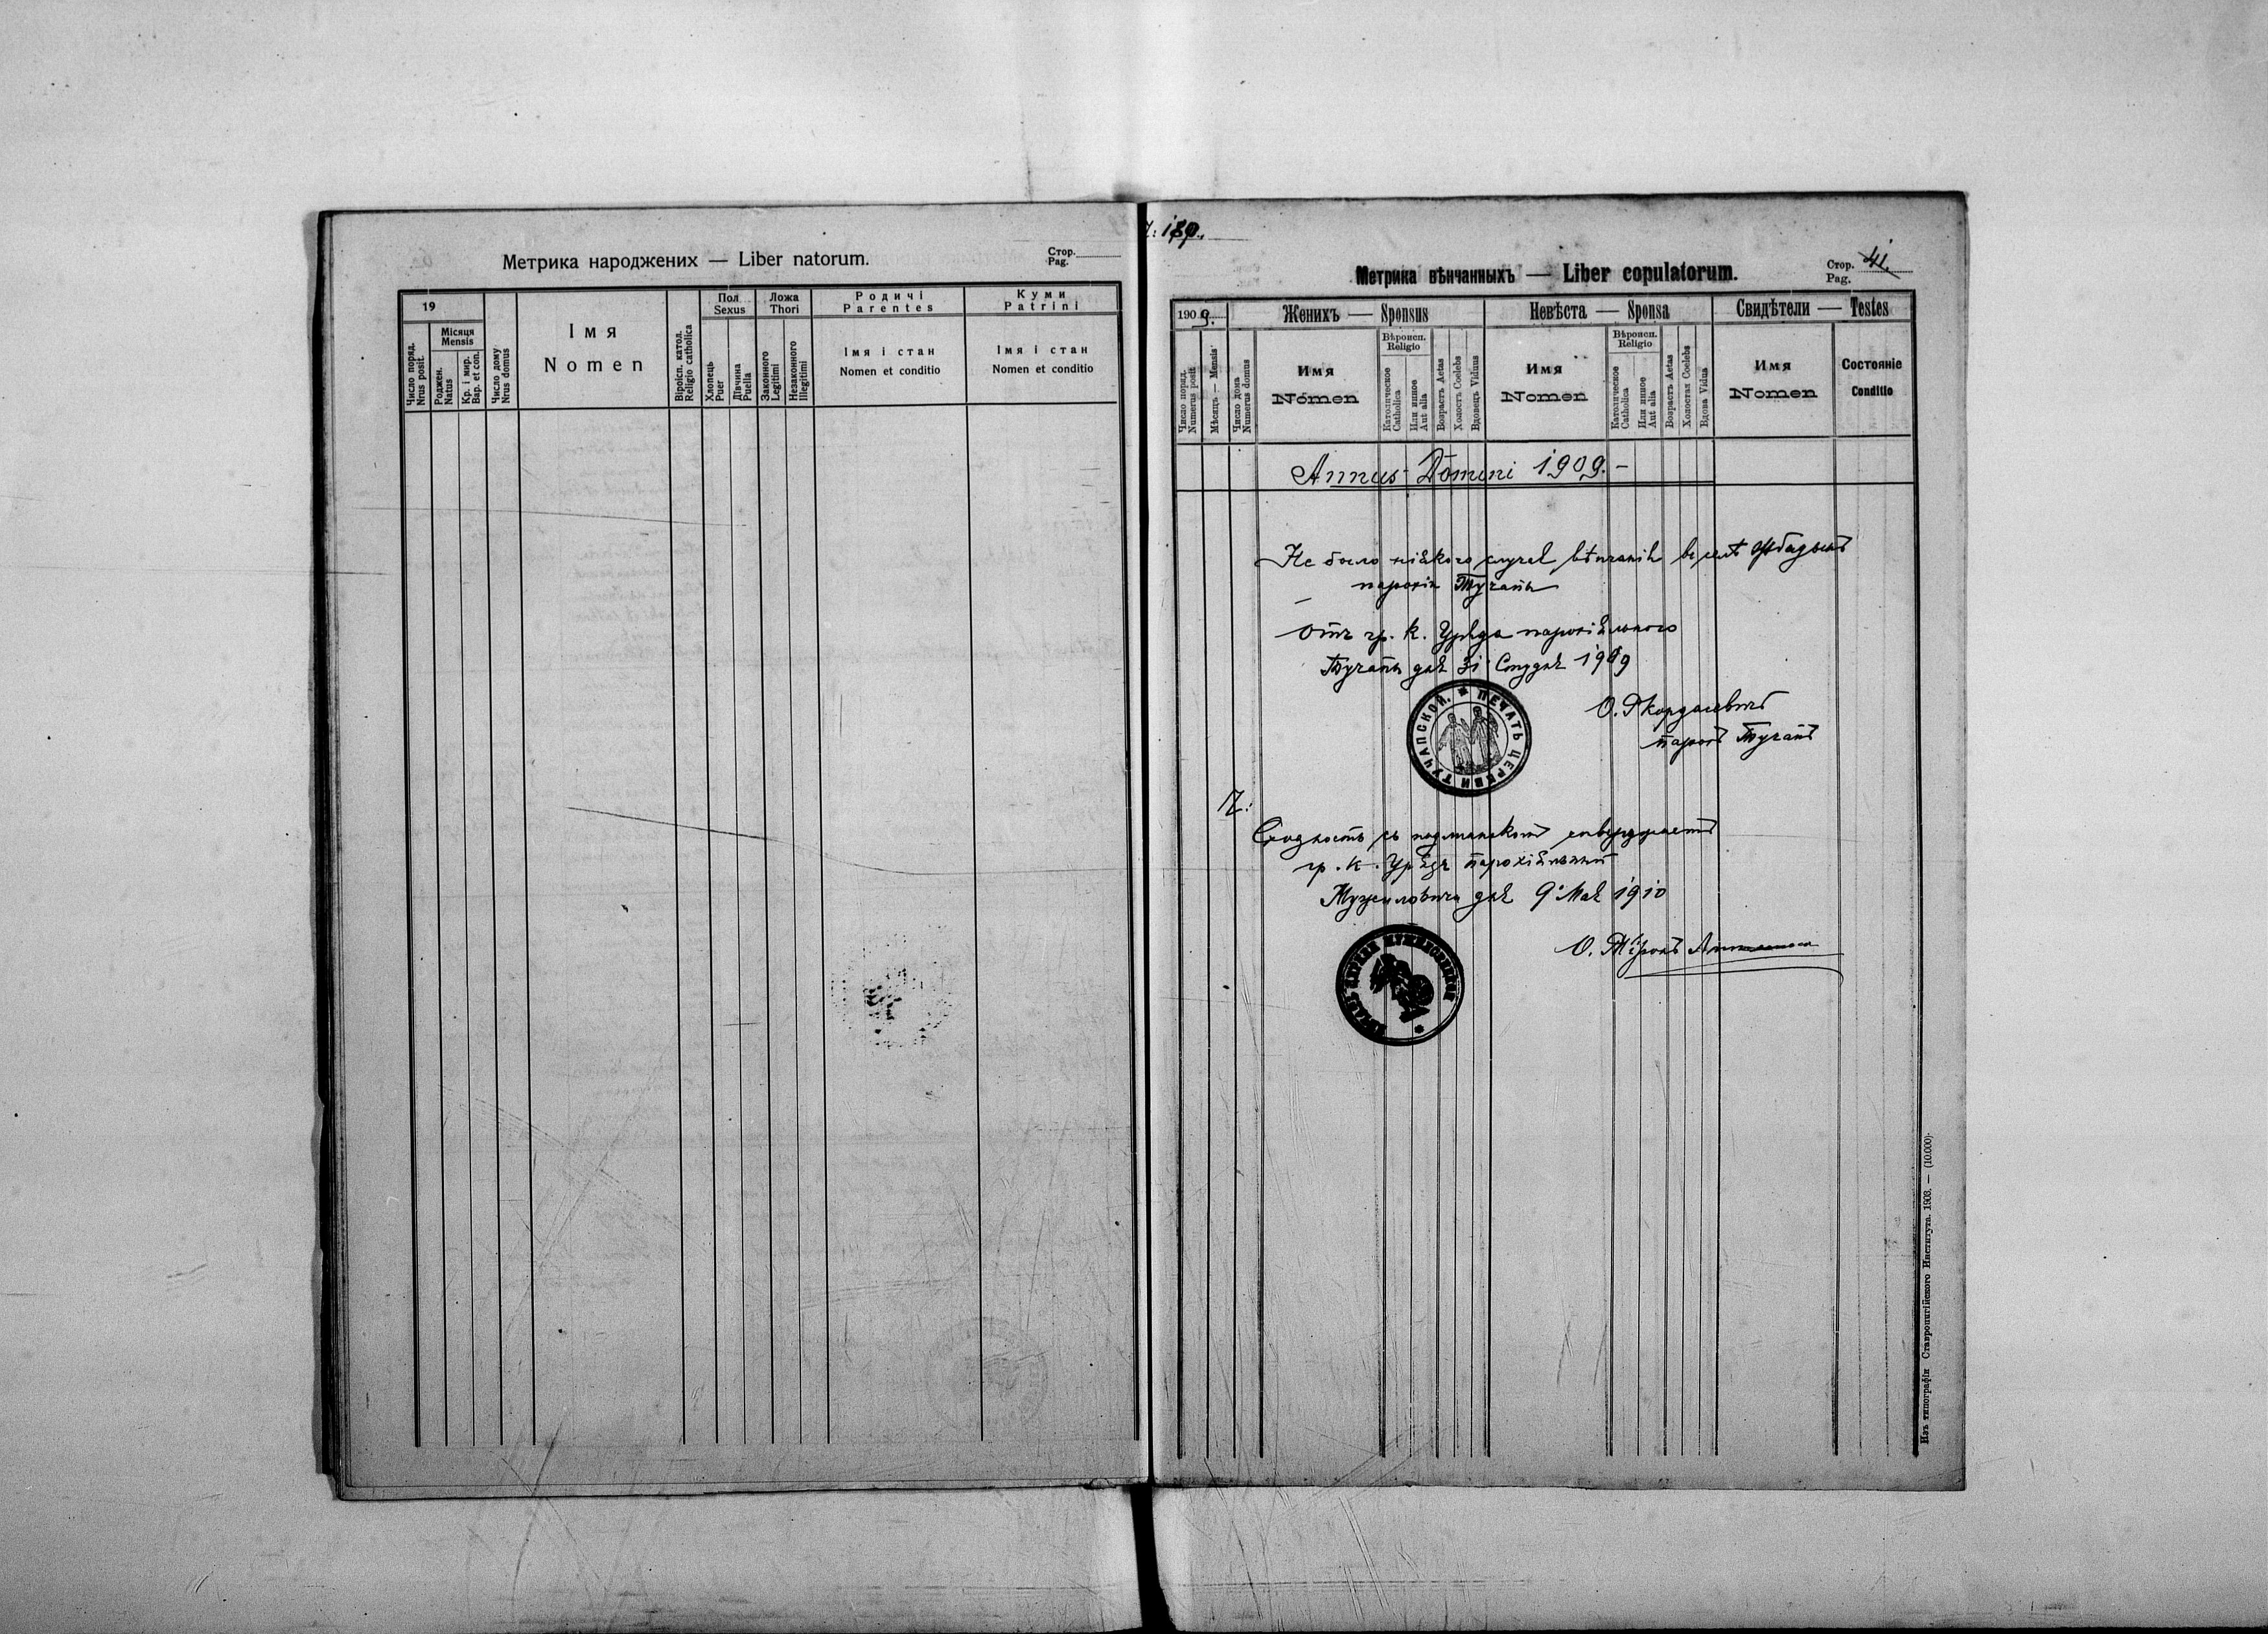 Метрика народжених — Liber natorum.
Стор.
Pag.
19
Число поряд.
Nrus posit.
Місяця
Mensis
Роджен.
Natus
Кр. і мир.
Bap. et con.
Число дому
Nrus domus
Імя
Nomen
Віроісп. катол.
Religio catholica
Пол
Sexus
Хлопець
Puer
Дівчина
Puella
Ложа
Thori
Законного
Legitimi
Незаконного
Illegitimi
Родичі
Parentes
Імя і стан
Nomen et conditio
Куми
Patrini
Імя і стан
Nomen et conditio
Метрика вѣнчанныхъ — Liber copulatorum.
Стор. 41.
Pag.
1909.
Число поряд.
Numerus posit
Мѣсяць — Mensis
Число дома
Numerus domus
Женихъ — Sponsus
Имя
Nomen
Вѣроисп.
Religio
Католическое
Catholica
Или иншое
Aut alia
Возрастъ Aetas
Холостъ Coelebs
Вдовецъ Viduus
Невѣста — Sponsa
Имя
Nomen
Вѣроисп.
Religio
Католическое
Catholica
Или иншое
Aut alia
Возрастъ Aetas
Холостая Coelebs
Вдова Vidua
Свидѣтели — Testes
Имя
Nomen
Состояніе
Conditio
Annus Domini 1909. –
Не было ніякого случая вѣнчанія въ селѣ
парохіи Тучапы
Отъ гр. к. Уряда парохіяльного
Тучапы дня 31 Студня 1909
О.
парохъ Тучапъ
ПЕЧАТЬ ЦЕРКВИ ТУЧАПСКОЙ.
Сходность съ подлинникомъ
гр. к. Урядъ парохіяльный
Мужиловичи дня 9 Мая 1910
О.
Изъ типографіи Ставропигійского Института. 1903. — (10.000)